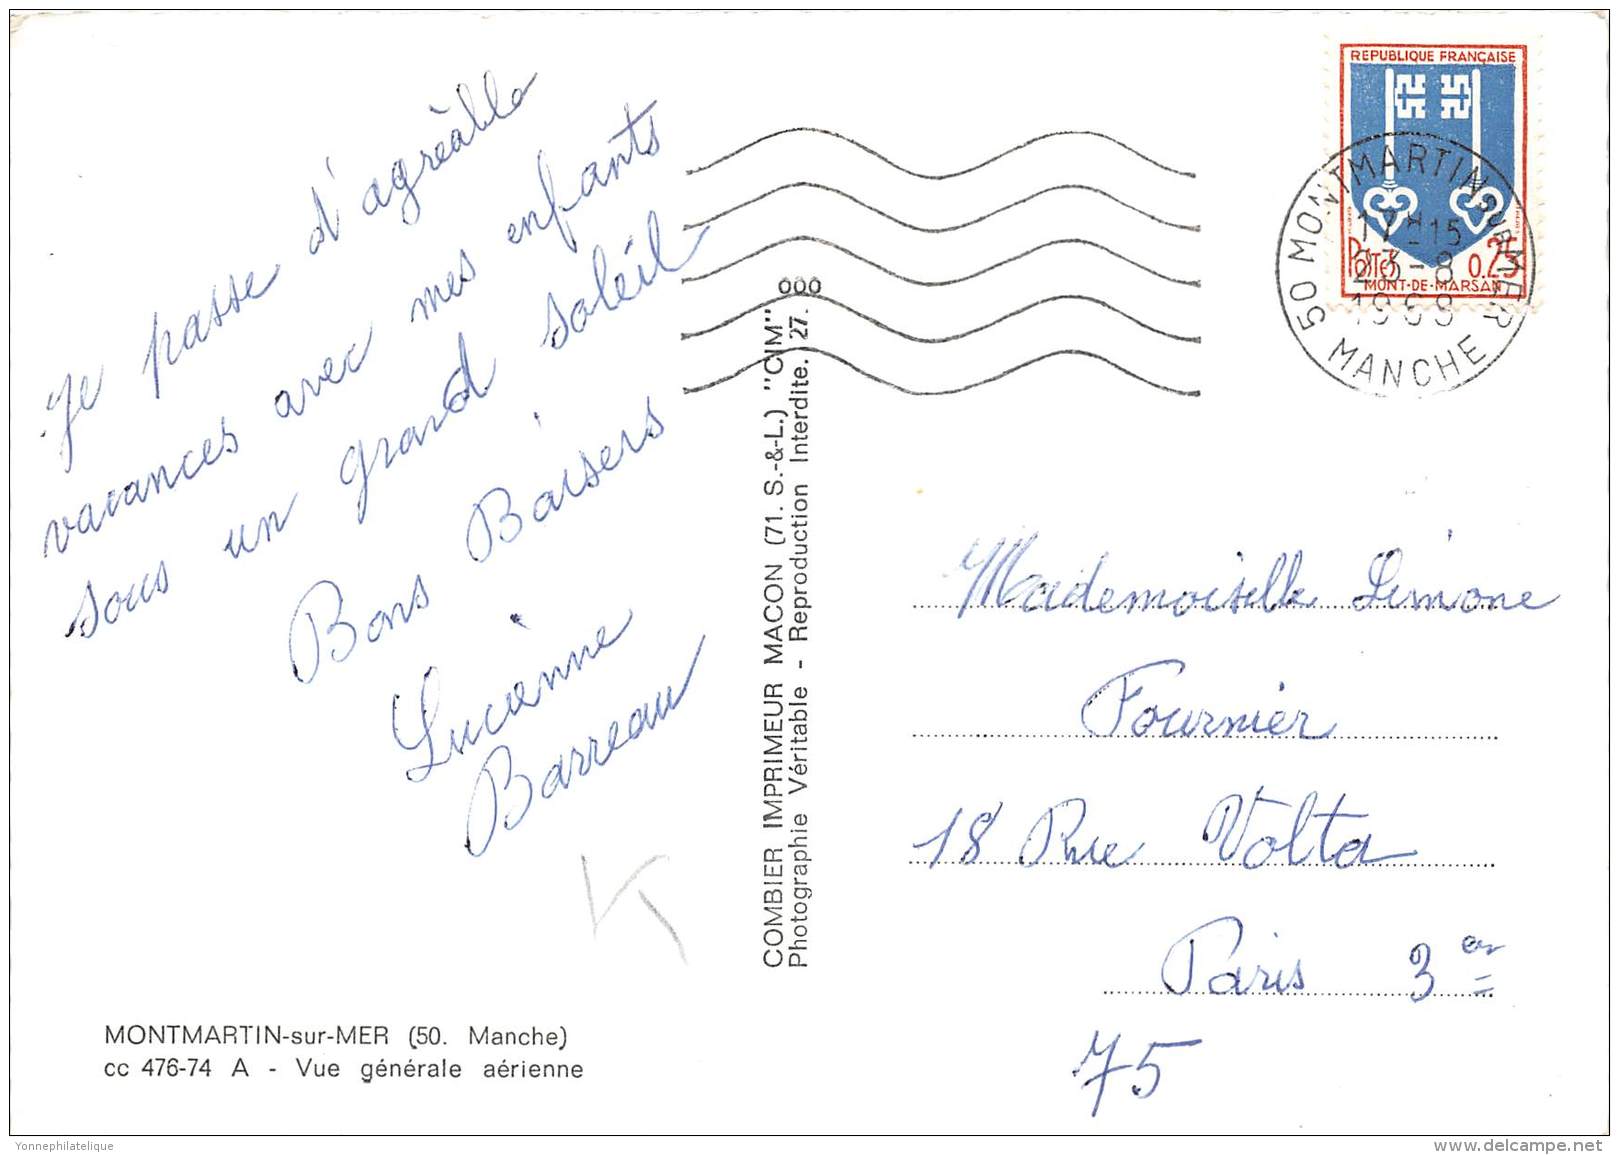 Je passe d'agréable
vacances avec mes enfants
sous un grand soleil
Bons Baisers
Lucienne
Barreau
MONTMARTIN-sur-MER (50. Manche)
cc 476-74 A - Vue générale aérienne
COMBIER IMPRIMEUR MACON (71. S.-&-L.) "CIM"
Photographie Véritable - Reproduction Interdite. 27.
REPUBLIQUE FRANÇAISE
POSTES 0.25
MONT-DE-MARSAN
50 MONTMARTIN SUR MER
17H15
8
MANCHE
Mademoiselle Simone
Fournier
18 Rue Volta
Paris 3er
75
Yonnephilatelique